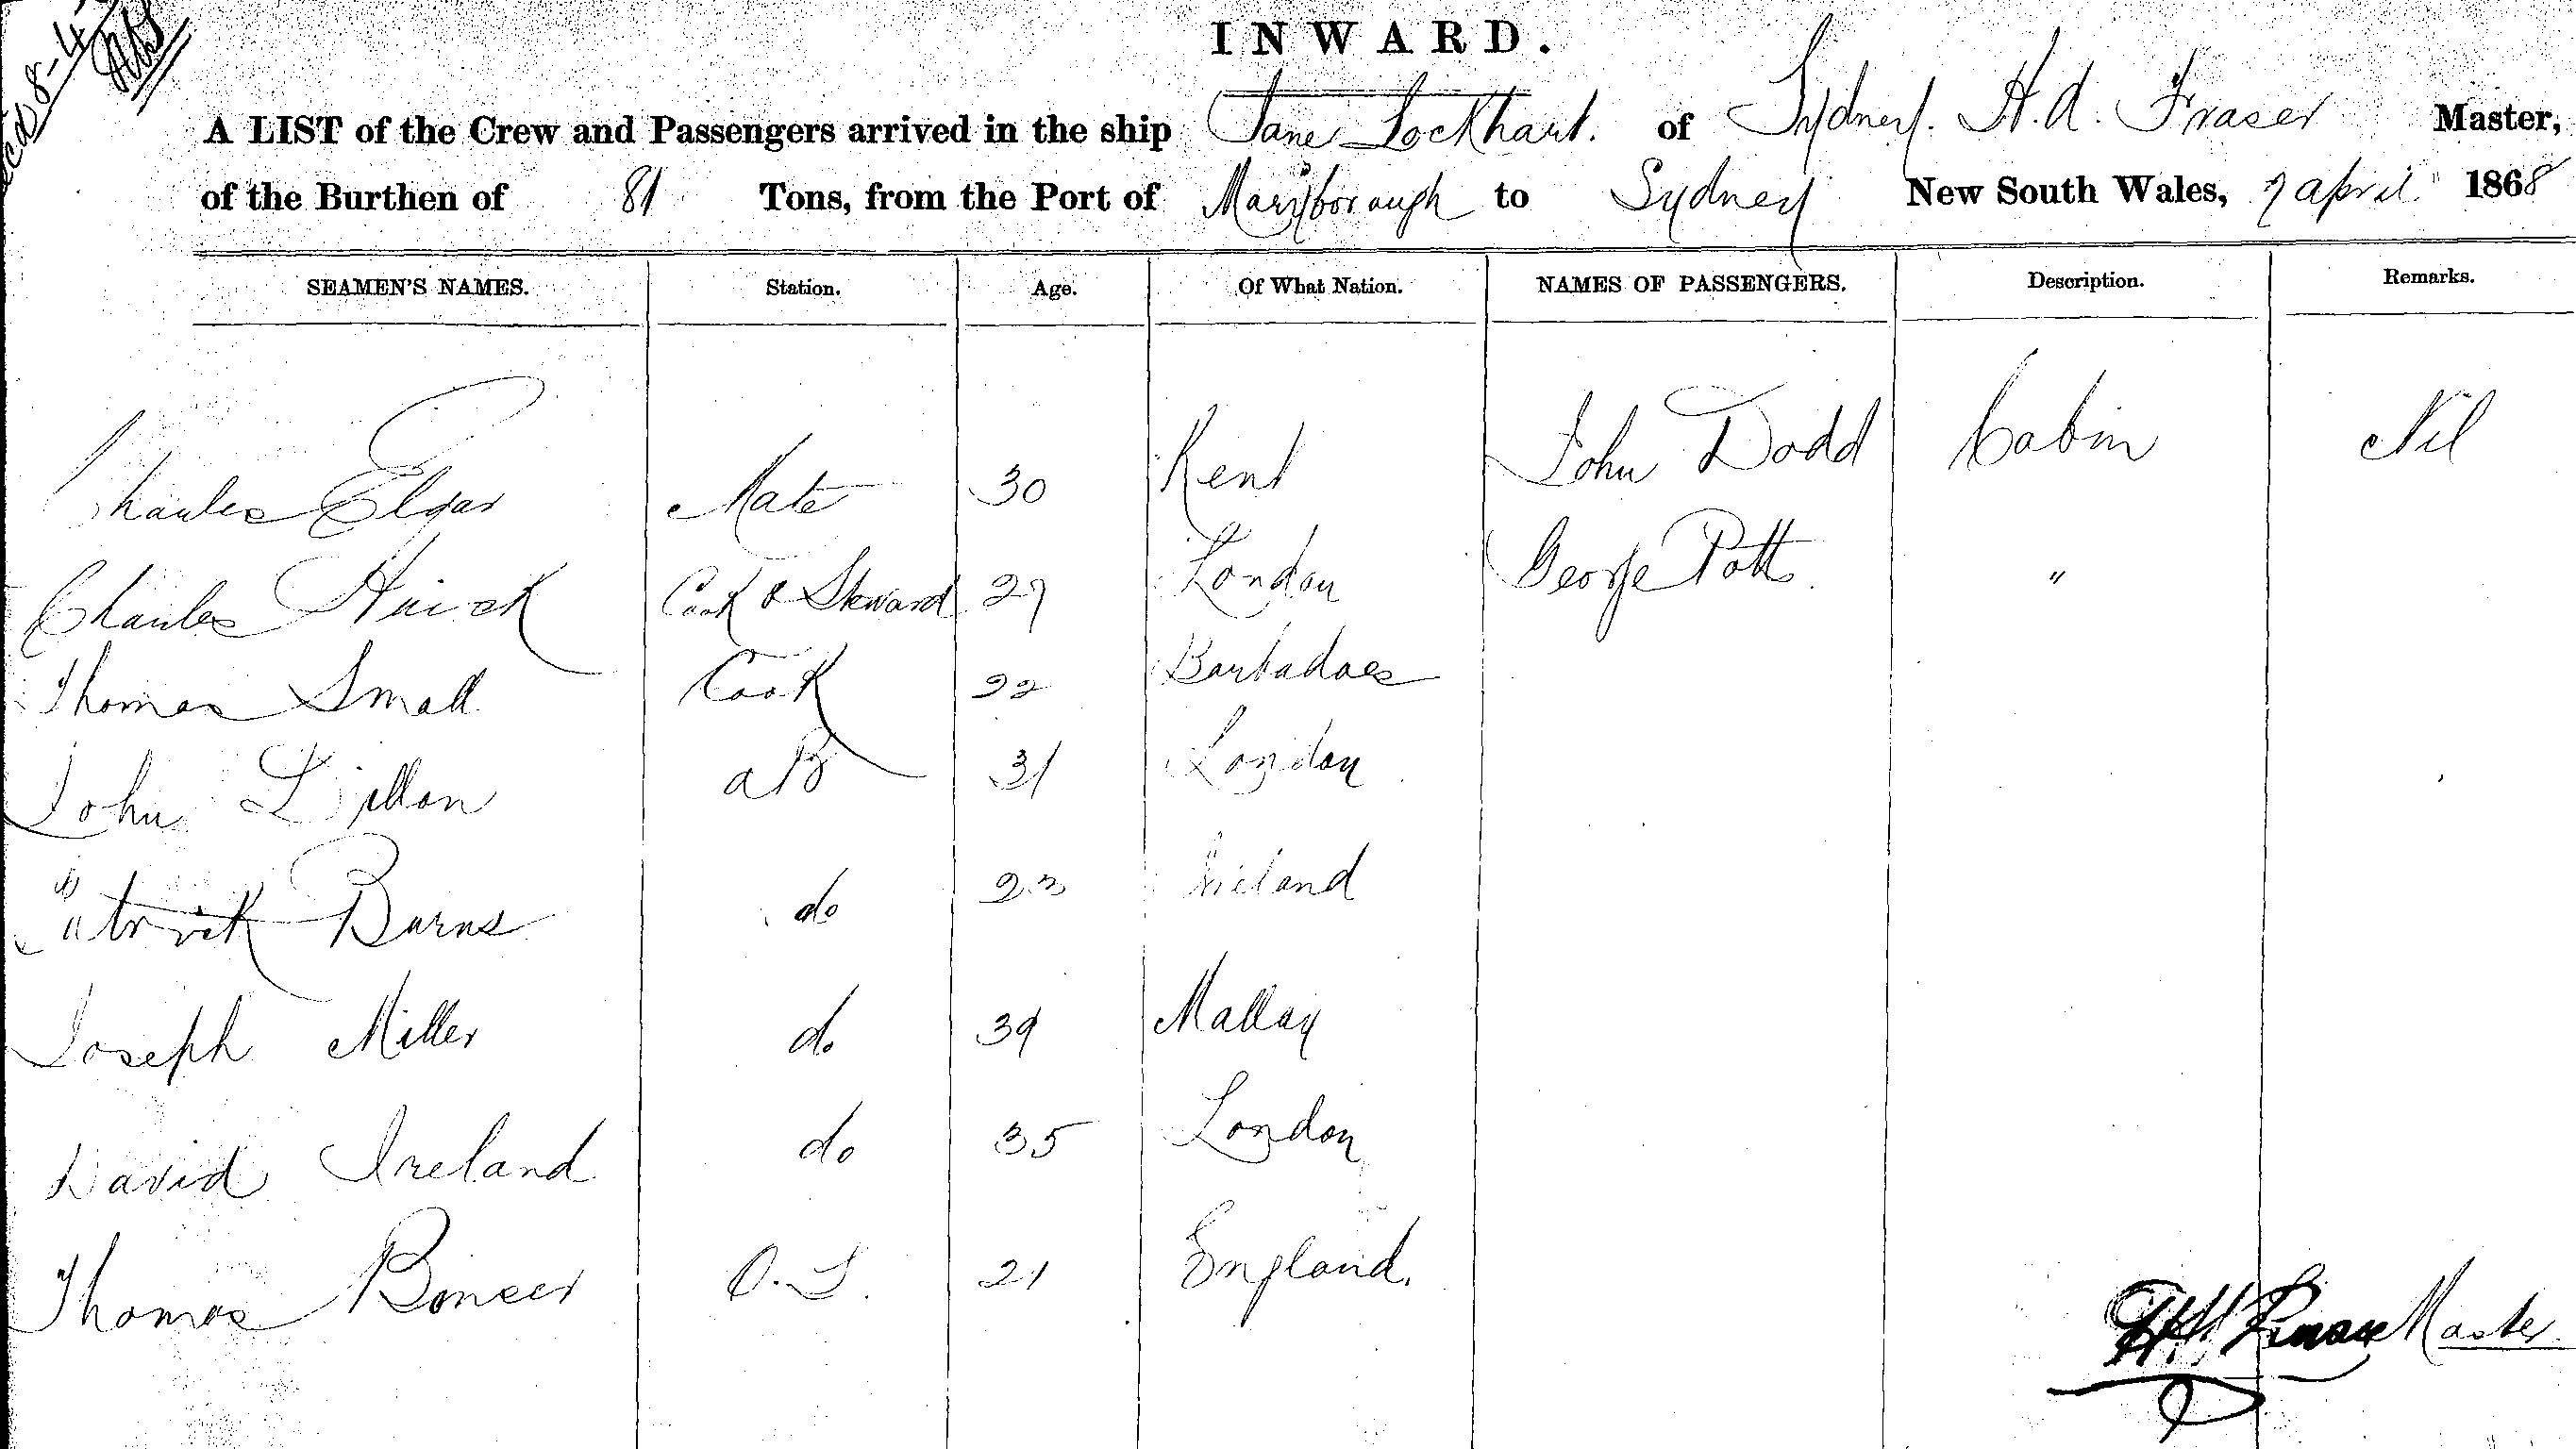 INWARD.
A LIST of the Crew and Passengers arrived in the ship Jane Lockhart. of Sydney. H. A. Fraser Master,
of the Burthen of 81 Tons, from the Port of Maryborough to Sydney New South Wales, 7 April 1868
SEAMEN'S NAMES. Station. Age. Of What Nation. NAMES OF PASSENGERS. Description. Remarks.
Charles Elgar Mate 30 Kent John Dodd Cabin Nil
Charles Cook & Steward 27 London George Potts "
Thomas Small Cook 22 Barbadoes
John Dillon AB 31 London
Patrick Burns do 23 Ireland
Joseph Miller do 39 Mallay
David Ireland do 35 London
Thomas O.S. 21 England.
Master